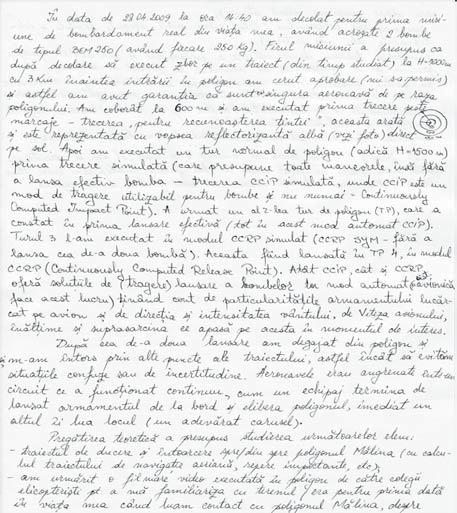 În data de 28.04.2009 la ora 14.40 am decolat pentru prima misi-
une de bombardament real din viața mea, având acroșate 2 bombe
de tipul BEM 250 (având fiecare 250 kg). Firul misiunii a presupus ca
după decolare să execut zbor pe un traiect (din timp studiat) la H=1000m
cu 3 Km înaintea intrării în poligon am cerut aprobare (mi s-a permis)
și astfel am avut garanția că sunt singura aeronavă de pe raza
poligonului. Am coborât la 600 m și am executat prima trecere peste
marcaje - trecerea „pentru recunoașterea țintei", aceasta arată
și este reprezentată cu vopsea reflectorizantă albă (vezi foto) direct
pe sol. Apoi am executat un tur normal de poligon (adică H=1500 m)
prima trecere simulată (care presupune toate manevrele, însă fără
a lansa efectiv bomba - trecerea CCIP simulată, unde CCIP este un
mod de tragere utilizabil pentru bombe și nu numai - Continuously
Computed Impact Point). A urmat un al 2-lea tur de poligon (TP), care a
constat în prima lansare efectivă (tot în acest mod automat CCIP).
Turul 3 l-am executat în modul CCRP simulat (CCRP SYM - fără a
lansa cea de-a doua bombă). Aceasta fiind lansată în TP 4, în modul
CCRP (Continuously Computed Release Point). Atât CCIP, cât și CCRP
oferă soluțiile de (tragere) lansare a bombelor în mod automat (avionica
face acest lucru) ținând cont de particularitățile armamentului încăr-
cat pe avion și de direcția și intensitatea vântului, de viteza avionului,
înălțime și suprasarcina ce apasă pe acesta în momentul de interes.
După cea de-a doua lansare am degajat din poligon și
m-am întors prin alte puncte ale traiectului, astfel încât să evităm
situațiile confuze sau de incertitudine. Aeronavele erau angrenate într-un
circuit ce a funcționat continuu, cum un echipaj termina de
lansat armamentul de la bord și elibera poligonul, imediat un
altul îi lua locul (un adevărat carusel).
Pregătirea teoretică a presupus studierea următoarelor elem:
- traiectul de ducere și întoarcere spre/din spre poligonul Mălina (cu calcu-
lul traiectului de navigație aeriană, repere importante, etc);
- am urmărit o filmare video executată în poligon de către colegii
elicopteriști pt. a mă familiariza cu terenul (era pentru prima dată
în viața mea când luam contact cu poligonul Mălina, despre